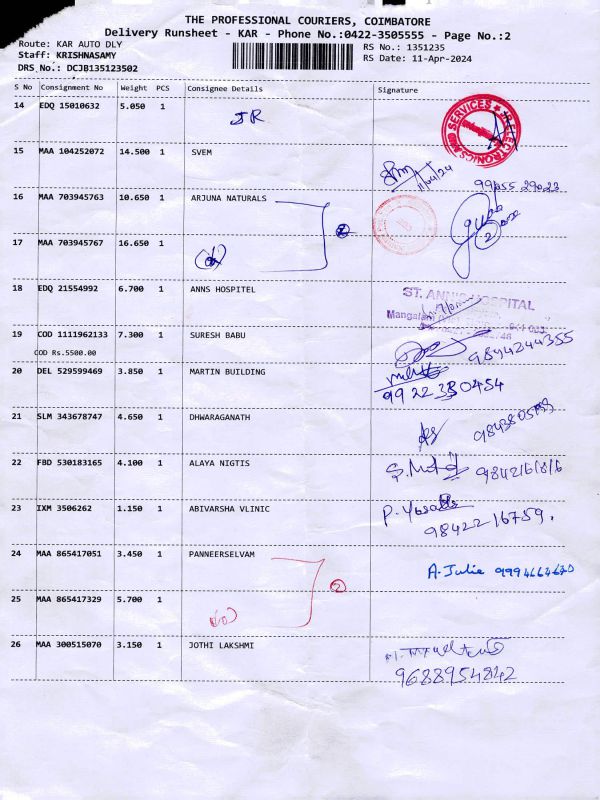 THE PROFESSIONAL COURIERS, COIMBATORE
Delivery Runsheet - KAR - Phone No.:0422-3505555 - Page No.:2
Route: KAR AUTO DLY
RS No.: 1351235
Staff: KRISHNASAMY
RS Date: 11-Apr-2024
DRS No.: DCJB135123502
S No Consignment No Weight PCS Consignee Details Signature
14 EDQ 15010632 5.050 1 JR
SERVICES
ELECTRONICS AND
15 MAA 104252072 14.500 1 SVEM
11/04/24
16 MAA 703945763 10.650 1 ARJUNA NATURALS
99955 29023
2
17 MAA 703945767 16.650 1
2
18 EDQ 21554992 6.700 1 ANNS HOSPITEL
ST. ANN'S HOSPITAL
Mangalam
19 COD 1111962133 7.300 1 SURESH BABU
9894244355
COD Rs.5500.00
20 DEL 529599469 3.850 1 MARTIN BUILDING
9922330454
21 SLM 343678747 4.650 1 DHWARAGANATH
22 FBD 530183165 4.100 1 ALAYA NIGTIS
9842161816
23 IXM 3506262 1.150 1 ABIVARSHA VLINIC
98422 16759.
24 MAA 865417051 3.450 1 PANNEERSELVAM
A. Julie 9994664620
2
25 MAA 865417329 5.700 1
26 MAA 300515070 3.150 1 JOTHI LAKSHMI
9688954842